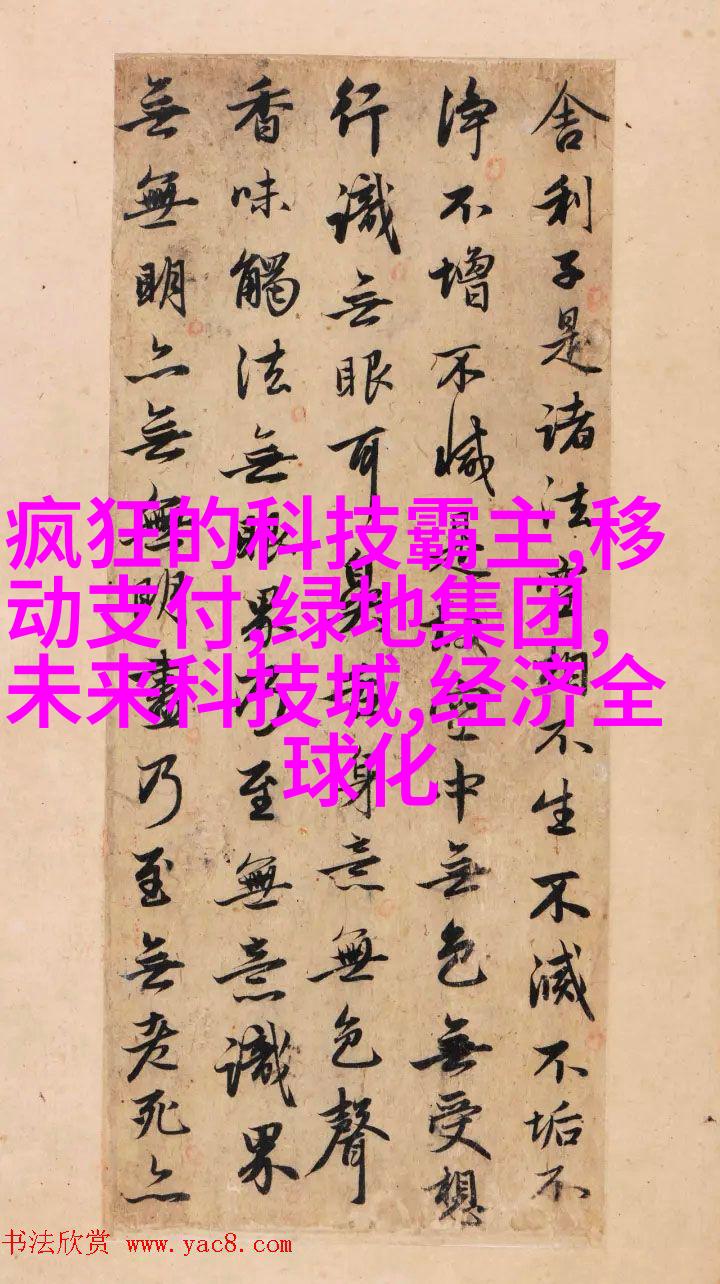 舍利子是諸法空相不生不滅不垢不
淨不增不減是故空中無色無受想
行識無眼耳鼻舌身意無色聲
香味觸法無眼界乃至無意識界
無無明亦無無明盡乃至無老死亦
疯狂的科技霸主,移
动支付,绿地集团,
未来科技城,经济全
球化
书法欣赏 www.yac8.com